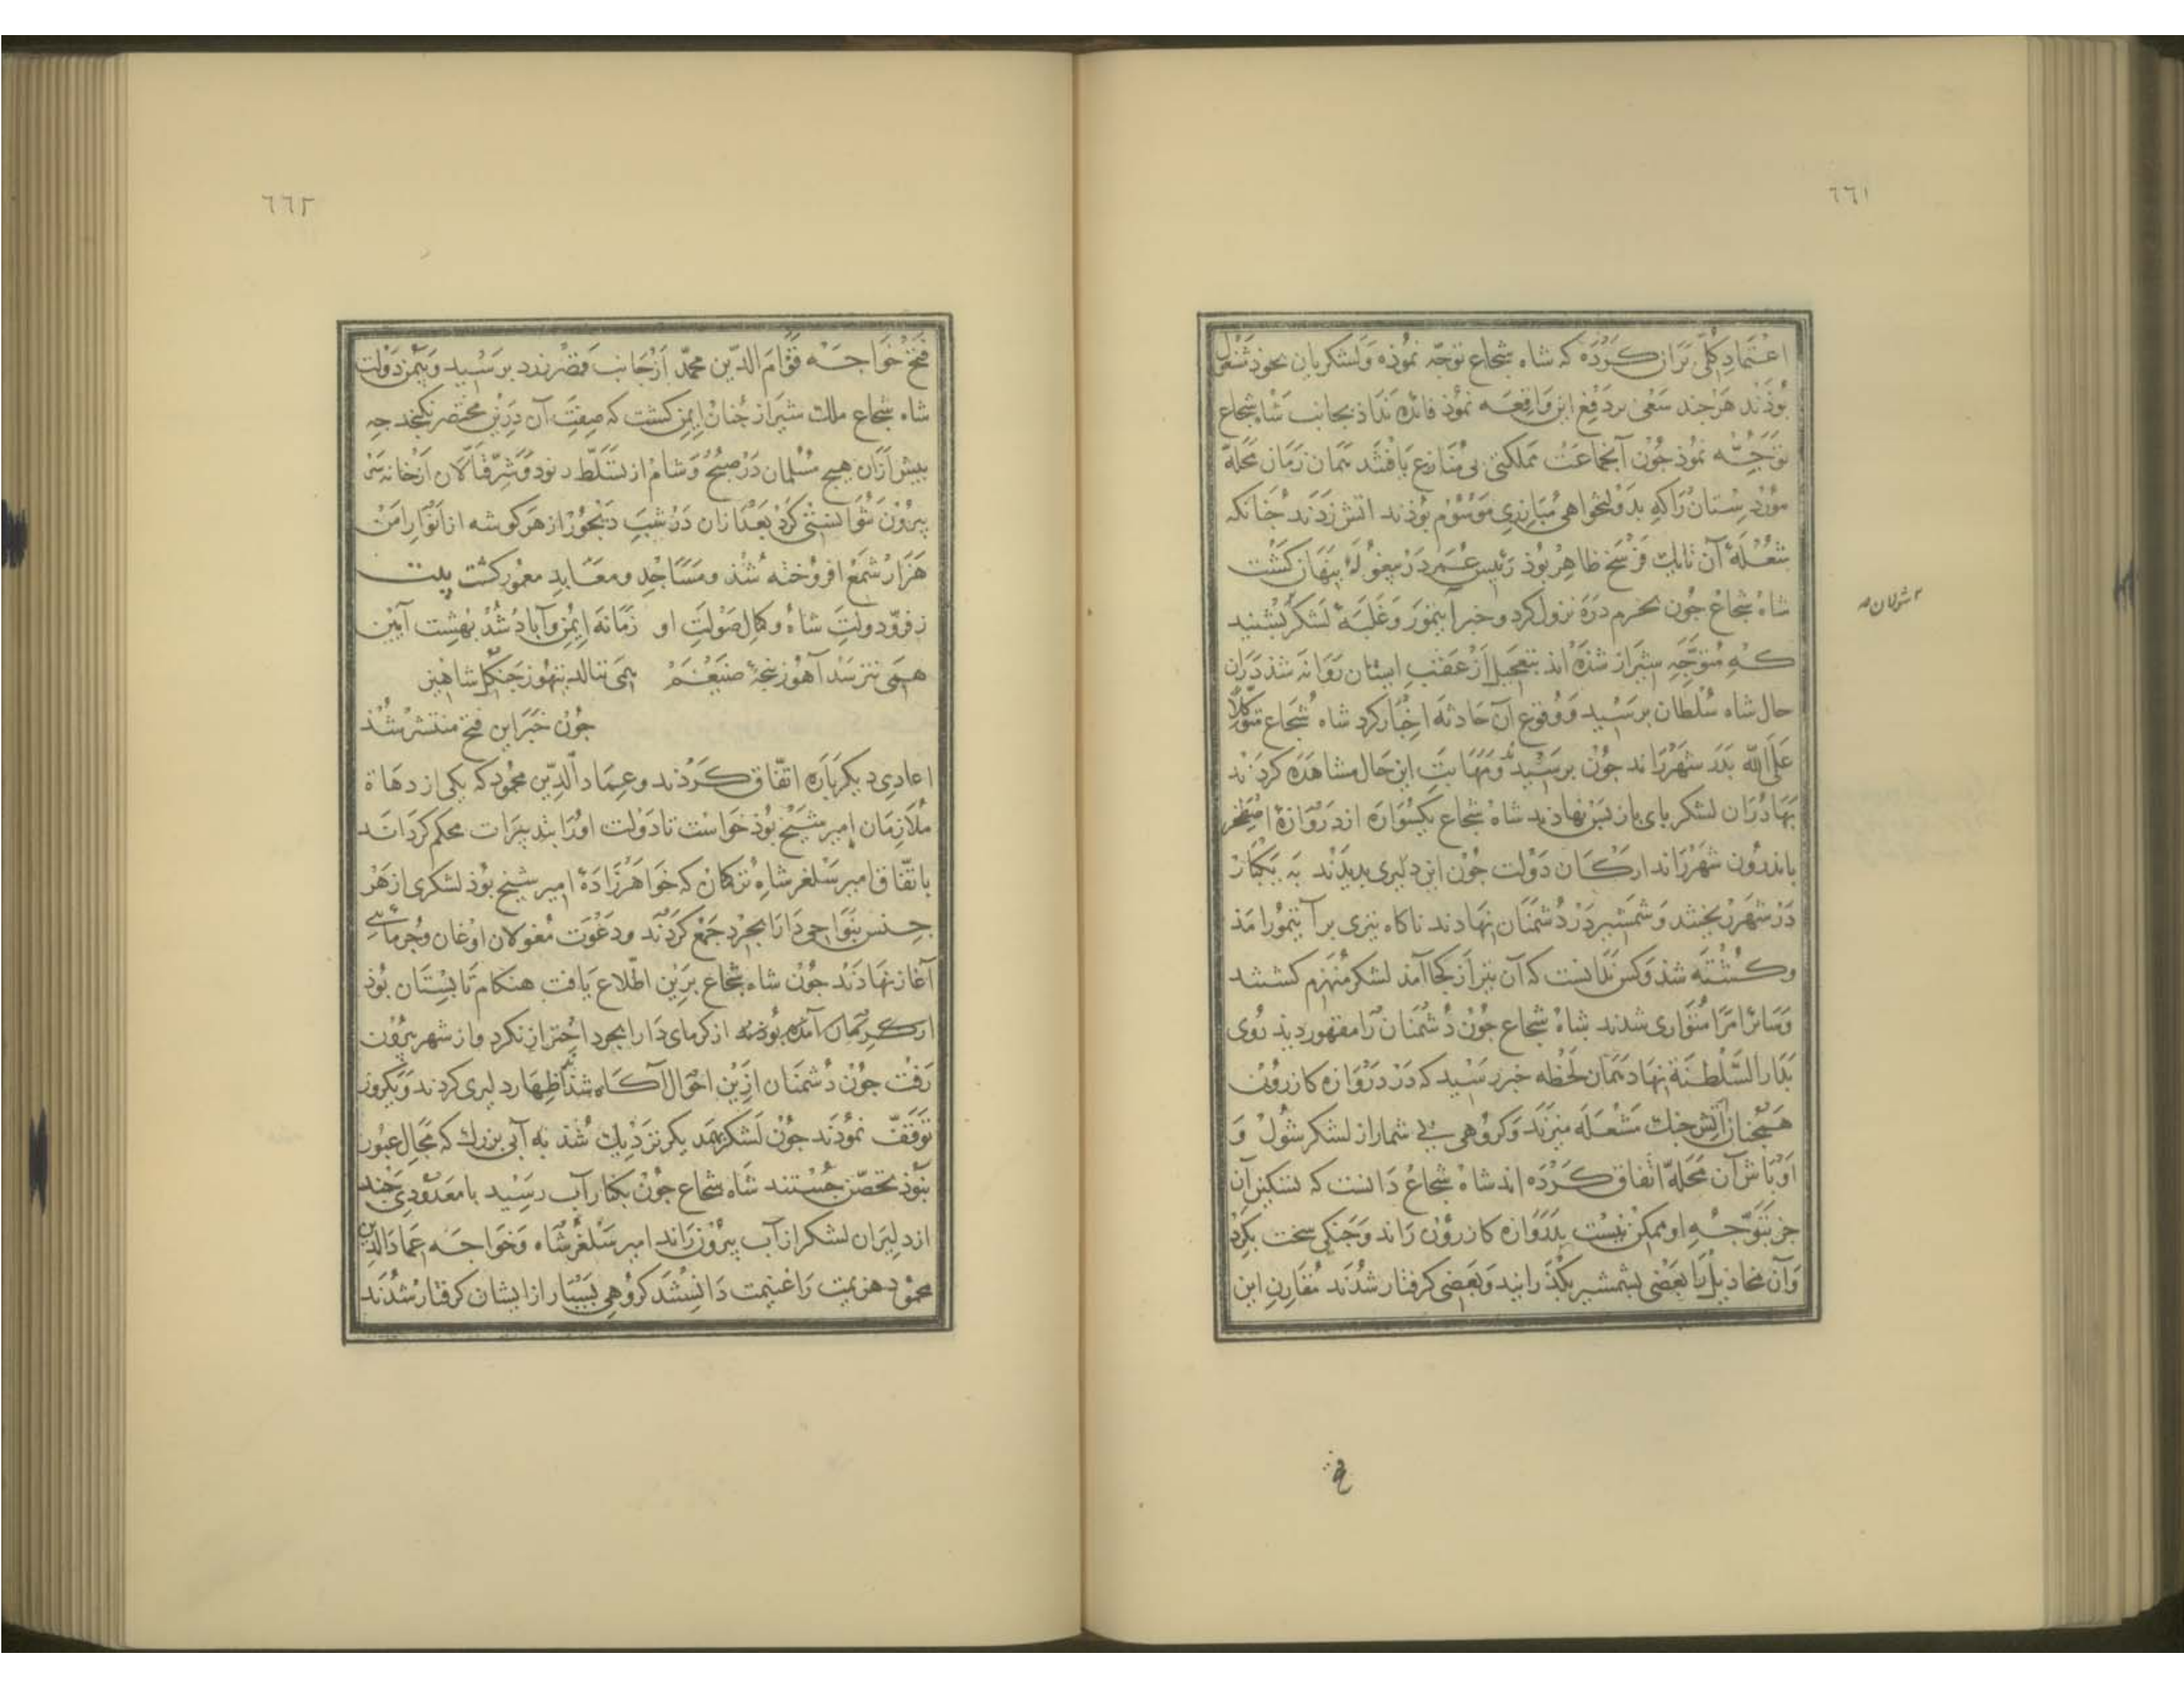 ٦٦١
اعتماد کلّی بران کرده که شاه شجاع توجّه نموذه ولشکریان بخوذ مشغول
بوذند هرچند سعی بر دفع این واقعه نموذ فائده نداذ بجانب شاه شجاع
توجّه نموذ جون آنجماعت مملکتی بی منازع یافتند همان زمان محلّه
موردستان راکه بدولتخواهی مبارزی موسوم بوذند اتش زدند جنانکه
شعله آن تا یک فرسخ ظاهر بوذ رئیس عمر در بیغوله پنهان کشت
شاه شجاع جون بخرم دره نزول کرد و خبر آیتمور و غلبه لشکر بشنید
۲ شولان صه
که متوجّه شیراز شذه اند بتعجیل از عقب ایشان روانه شذ دران
حال شاه سلطان برسید و وقوع آن حادثه اخبار کرد شاه شجاع متوکّلاً
علی الله بدر شهر راند جون برسید و مهابت این حال مشاهده کردند
بهادران لشکر بای باز بس نهاذند شاه شجاع یکسواره از دروازهٔ اصطخر
باندرون شهر راند ارکان دولت جون این دلیری بدیدند به یکبار
در شهر ریختند و شمشیر در دشمنان نهادند ناکاه تیری بر آیتمور امذ
وکشته شذ وکس ندانست که آن تیر از کجا آمذ لشکر منهزم کشتند
وسائر امرا متواری شدند شاه شجاع جون دشمنان را مقهور دید روی
بدار السّلطنة نهاد همان لحظه خبر رسید که در دروازه کازرون
همجنان آتش جنک مشعله میزند وکروهی بی شمار از لشکر شول و
اوباش آن محلّه اتفاق کرده اند شاه شجاع دانست که تسکین آن
جز بتوجّه او ممکن نیست بدروازه کازرون راند و جنکی سخت بکرد
وآن مخاذیل را بعضی بشمشیر بکذرانید وبعضی کرفتار شدند مقارن این
٦٦٢
فتح خواجه قوام الدّین محمّد از جانب قصر زرد برسید وبیمن دولت
شاه شجاع ملک شیراز جنان ایمن کشت که صفت آن درین مختصر نکنجد جه
بیش ازان هیچ مسلمان در صبح و شام از تسلّط رنود و شرّ قتّالان از خانه
بیرون نتوانستی کرد بعد ازان در شب دیجور از هر کوشه از انوار امن
هزار شمع افروخته شذ ومساجد ومعابد معمور کشت بیت
ز فرّ دولت شاه وکمال صولت او زمانه ایمن وآباد شد بهشت آیین
همی نترسد آهو ز پنجهٔ ضیغم همی ننالد تیهو ز جنکل شاهین
جون خبر این فتح منتشر شذ
اعادی دیکرباره اتّفاق کردند وعماد الدّین محمود که یکی از دهاة
ملازمان امیر شیخ بوذ خواست تا دولت اورا بتدبیرات محکم کرداند
باتّفاق امیر سلغر شاه ترکمان که خواهرزادهٔ امیر شیخ بوذ لشکری از هر
جنس بنواحی دارابجرد جمع کردند و دعوت مغولان اوغان وجرمائی
آغاز نهادند جون شاه شجاع برین اطّلاع یافت هنکام تابستان بوذ
از کرمان آمده بوذند از کرمای دارابجرد احتراز نکرد واز شهر بیرون
رفت جون دشمنان ازین احوال آکاه شذند اظهار دلیری کردند ویکروز
توقّف نموذند جون لشکر بهمدیکر نزدیک شذ به آبی بزرک که مجال عبور
نبوذ تحصّن جستند شاه شجاع جون بکنار آب رسید با معدودی جند
از دلیران لشکر از آب بیرون راند امیر سلغرشاه وخواجه عماد الدین
محمود هزیمت را غنیمت دانستند کروهی بسیار از ایشان کرفتار شدند